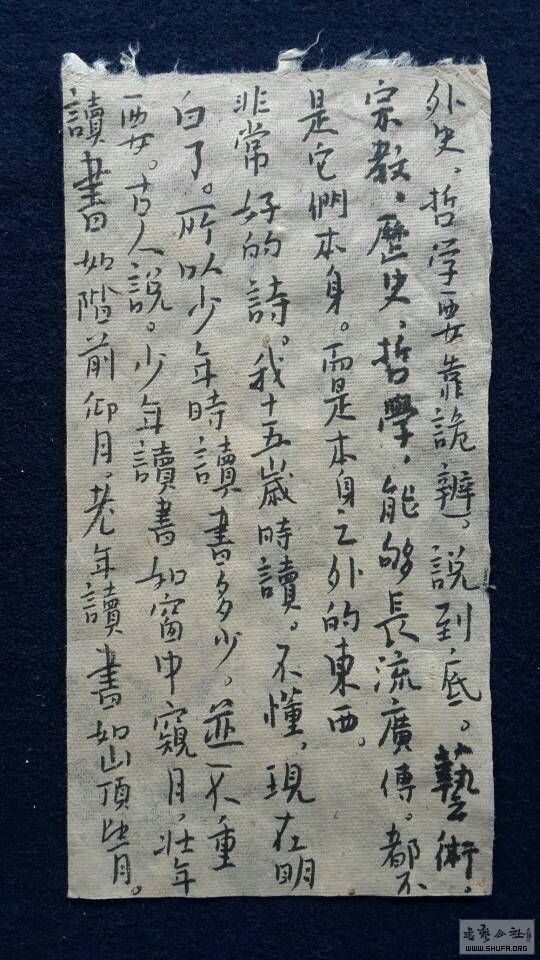 外史，哲学要靠詭辯，說到底。藝術，
宗教，歷史，哲學，能够長流廣傳。都不
是它們本身。而是本身之外的東西。
非常好的詩。我十五歲時讀。不懂，現在明
白了。所以少年時讀書多少。並不重
要。古人說。少年讀書如窗中窺月，壯年
讀書如階前仰月，老年讀書如山頂望月。
书艺公社
WWW.SHUFA.ORG